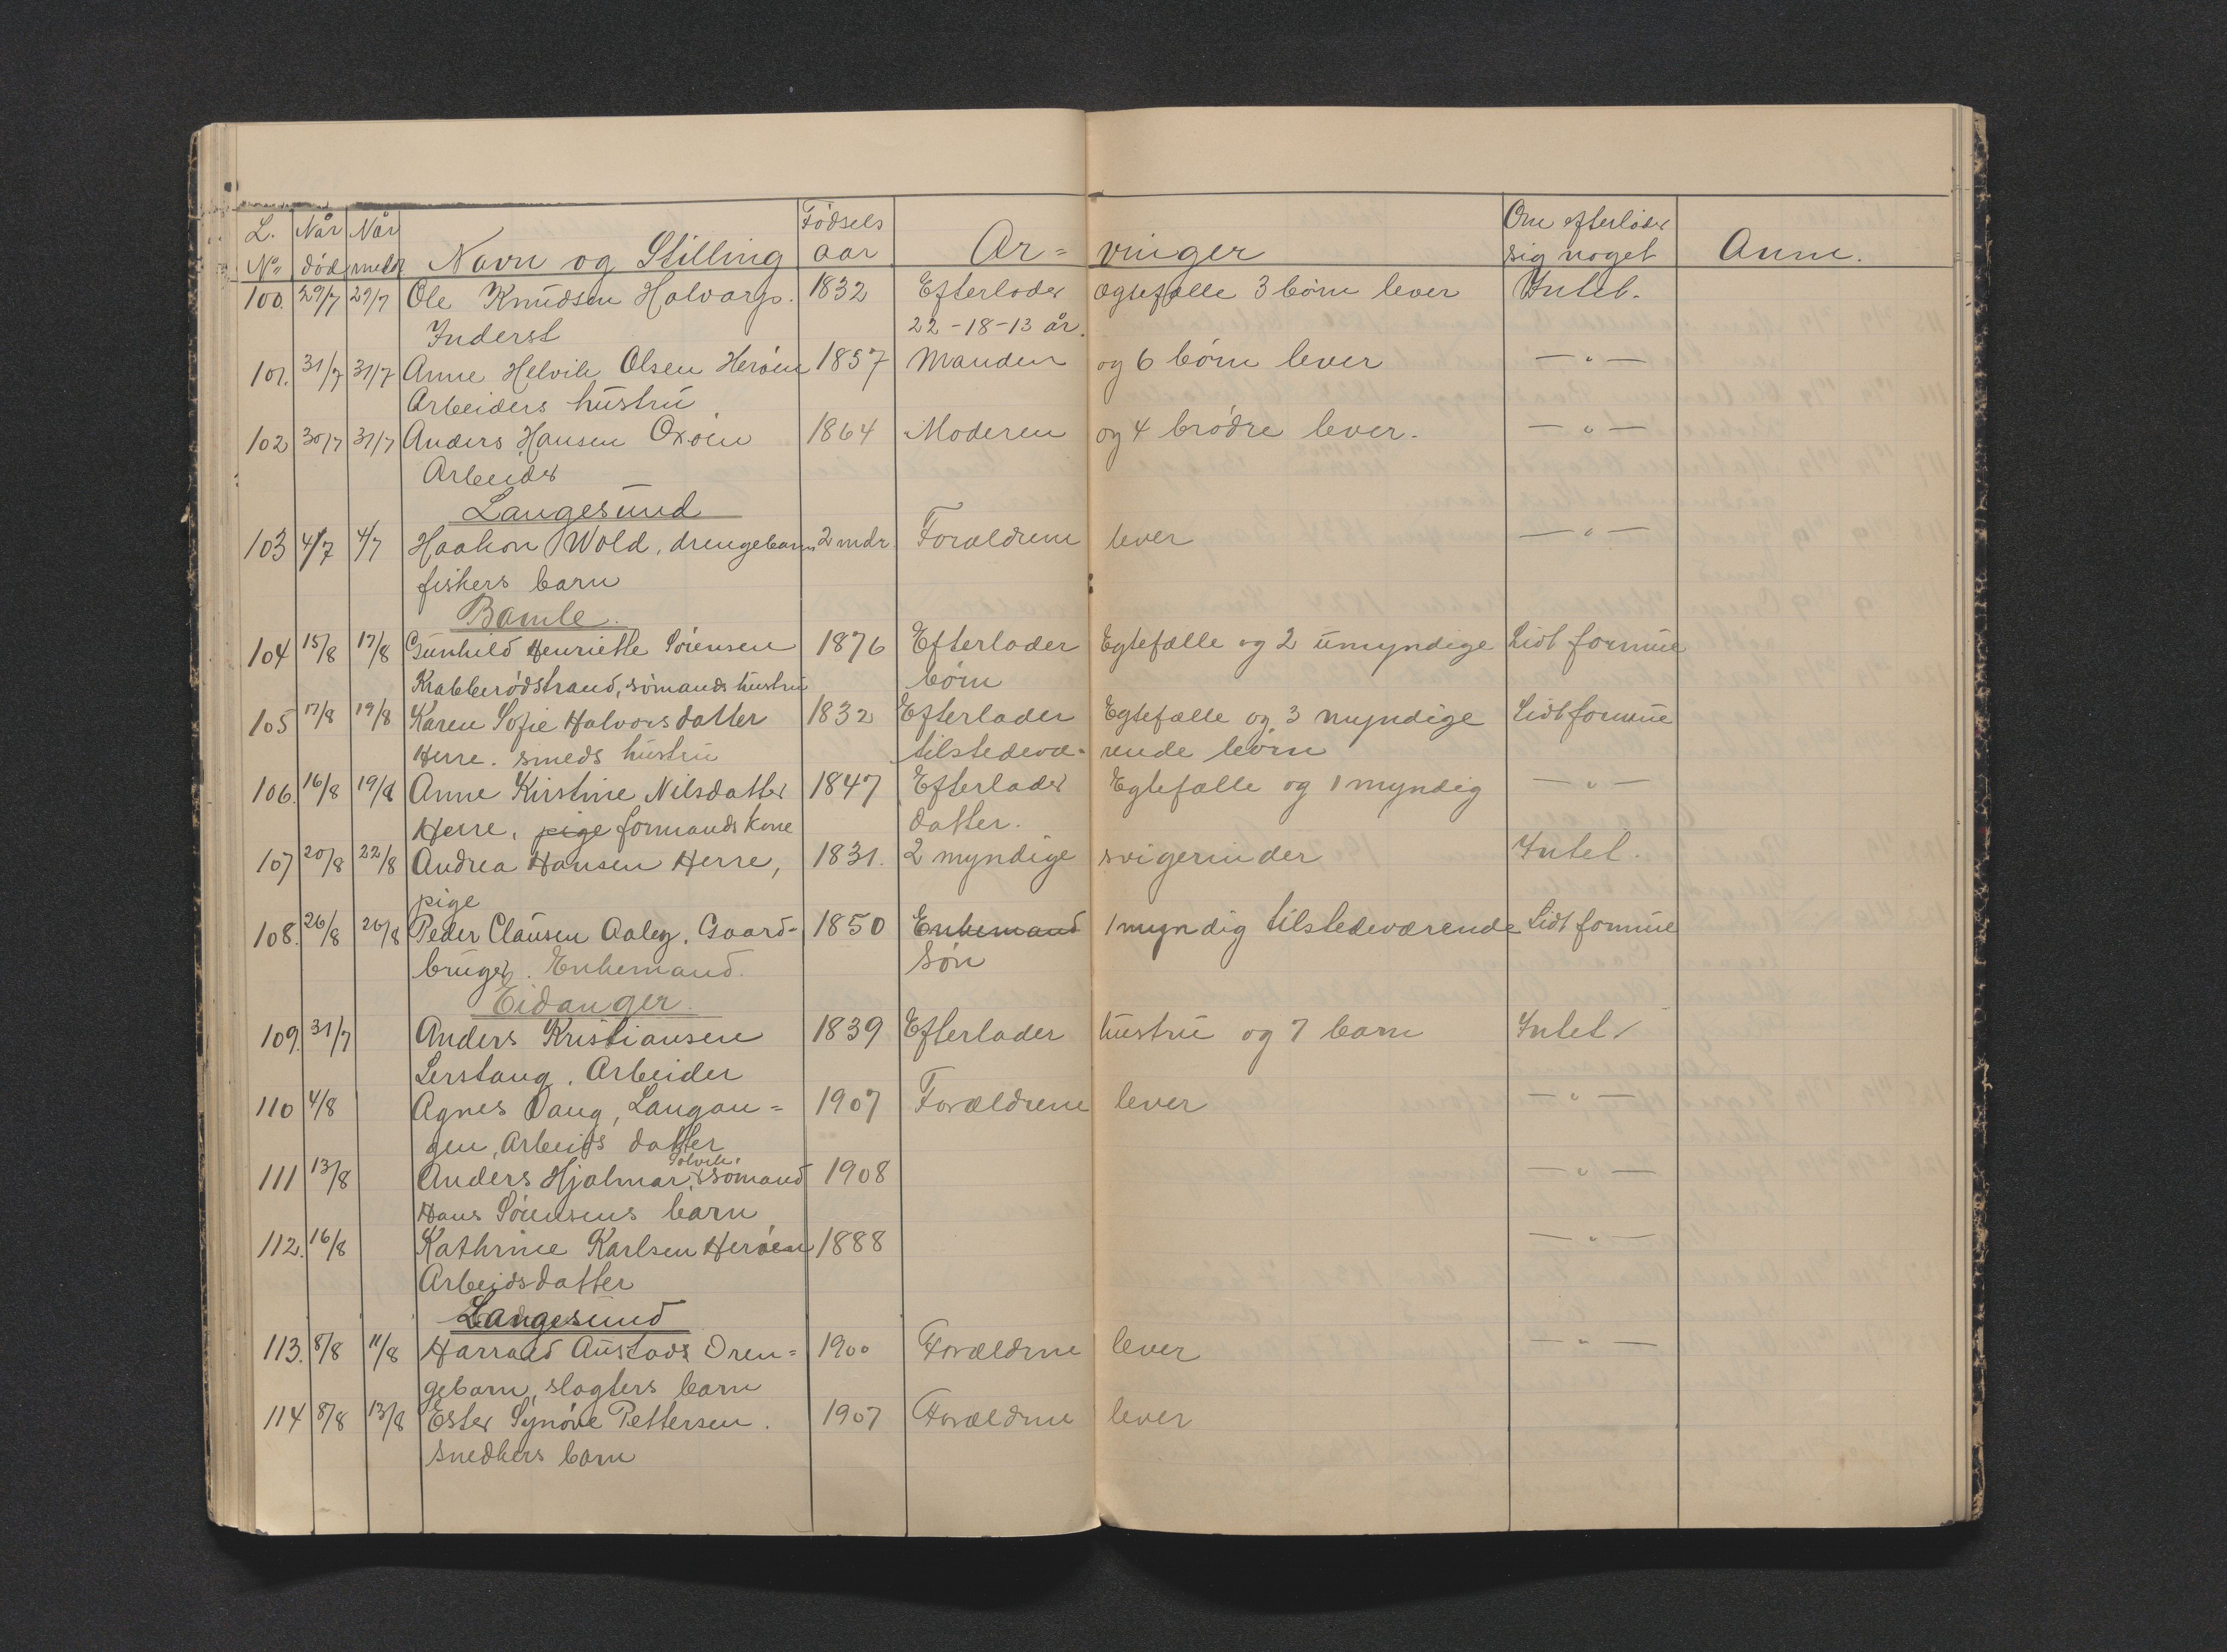 L. Når Når Fødsels Om efterlader
No død meldt Navn og Stilling aar Ar= vinger sig noget Anm.
100. 29/7 29/7 Ole Knudsen Halvarp. 1832 Efterlader ægtefælle 3 børn lever Intet.
Inderst 22-18-13 år.
101. 31/7 31/7 Anne Helvik Olsen Herøen 1857 Manden og 6 børn lever — " —
Arbeiders hustru
102 30/7 31/7 Anders Hansen Oxøen 1864 Moderen og 4 brødre lever. — " —
Arbeider
Langesund
103 4/7 4/7 Haakon Wold, drengebarn 2 mdr. Forældrene lever — " —
fiskers barn
Bamle.
104 15/8 17/8 Gunhild Henriette Sørensen 1876 Efterlader Egtefælle og 2 umyndige Lidt formue
Krabberødstrand, sømands hustru børn
105 17/8 19/8 Karen Sofie Halvorsdatter 1832 Efterlader Egtefælle og 3 myndige Lidt formue
Herre. smeds hustru tilstedevæ- rende børn
106. 16/8 19/8 Anne Kirstine Nilsdatter 1847 Efterlader Egtefælle og 1 myndig — " —
Herre, pige formands kone datter.
107 20/8 22/8 Andrea Hansen Herre, 1831. 2 myndige svigerinder Intet.
pige
108. 26/8 26/8 Peder Clausen Aaby. Gaard- 1850 Enkemand 1 myndig tilstedeværende Lidt formue
bruger. Enkemand. søn
Eidanger.
109. 31/7 Anders Kristiansen 1839 Efterlader hustru og 7 barn Intet.
Lerstang. Arbeider
110 4/8 Agnes Vang, Langan= 1907 Forældrene lever — " —
gen, Arbeids datter
Solvik.
111 13/8 Anders Hjalmar, sømand 1908 — " —
Hans Sørensens barn
112. 16/8 Kathrine Karlsen Herøen 1888 — " —
Arbeidsdatter
Langesund
113. 8/8 11/8 Harrald Austads Dren= 1900 Forældrene lever — " —
gebarn, slagters barn
114 8/8 13/8 Ester Synøve Pettersen. 1907 Forældrene lever
snedkers barn